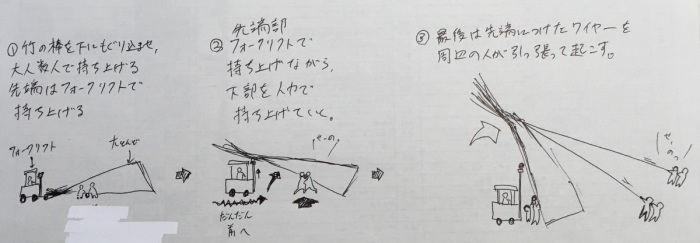 ①竹の棒を下にもぐり込ませ、
大人数人で持ち上げる
先端はフォークリフトで
持ち上げる
フォークリフト
② 先端部
フォークリフトで
持ち上げながら、
下部を人力で
持ち上げていく。
せーの
だんだん
前へ
③ 最後は先端につけたワイヤーを
周辺の人が引っ張って起こす。
せーのっ